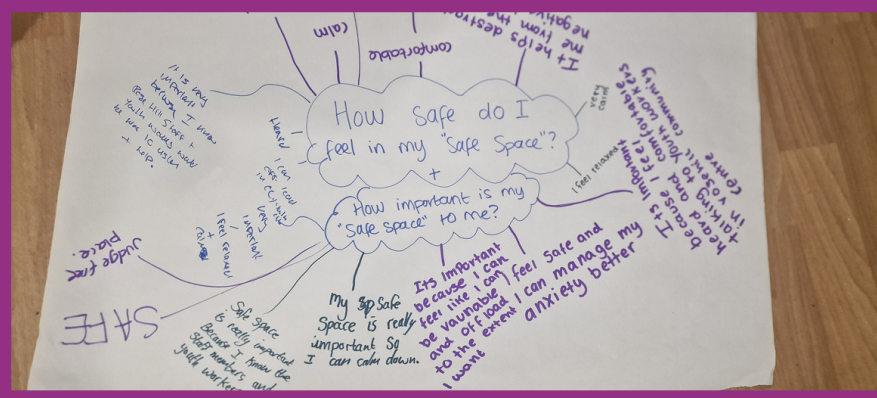 How safe do I
feel in my "Safe Space"?
+
How important is my
"safe space" to me?
calm
comfortable
It helps
me from the
negative
very
calm
I feel relaxed
Its Important
because I feel
heard and comfortable
talking to youth workers
in community
centre
I feel safe and
I can manage my
anxiety better
Its Important
because I can
feel like I can
be vaunable
and off load
to the extent
I want
My Safe
Space is really
important So
I can calm down.
Safe space
is really important
Because I know the
Staff members and
youth workers
SAFE
Judge free
place.
Heard
I can
off load
very
important
I feel relaxed
+
It is very
important
because I know
Rose Hill Staff +
Youth workers
+ help.